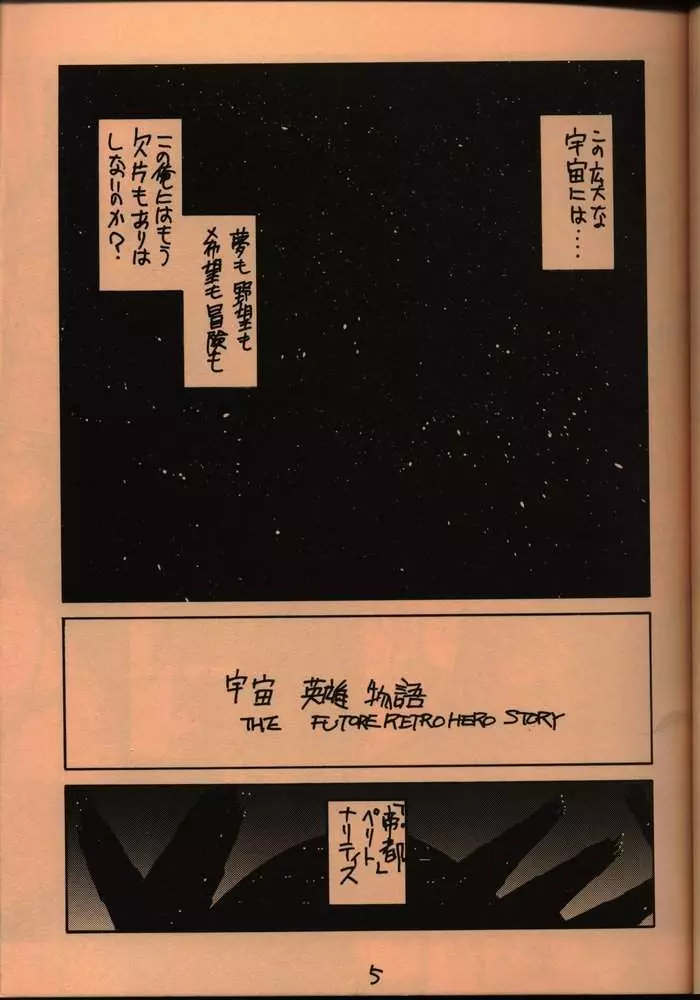 この広大な
宇宙には・・・・
夢も野望も
希望も冒険も
この俺にはもう
欠片もありは
しないのか?
宇宙 英雄 物語
THE FUTORE RETRO HERO STORY
「帝都」
ペリト
ナリティス
5